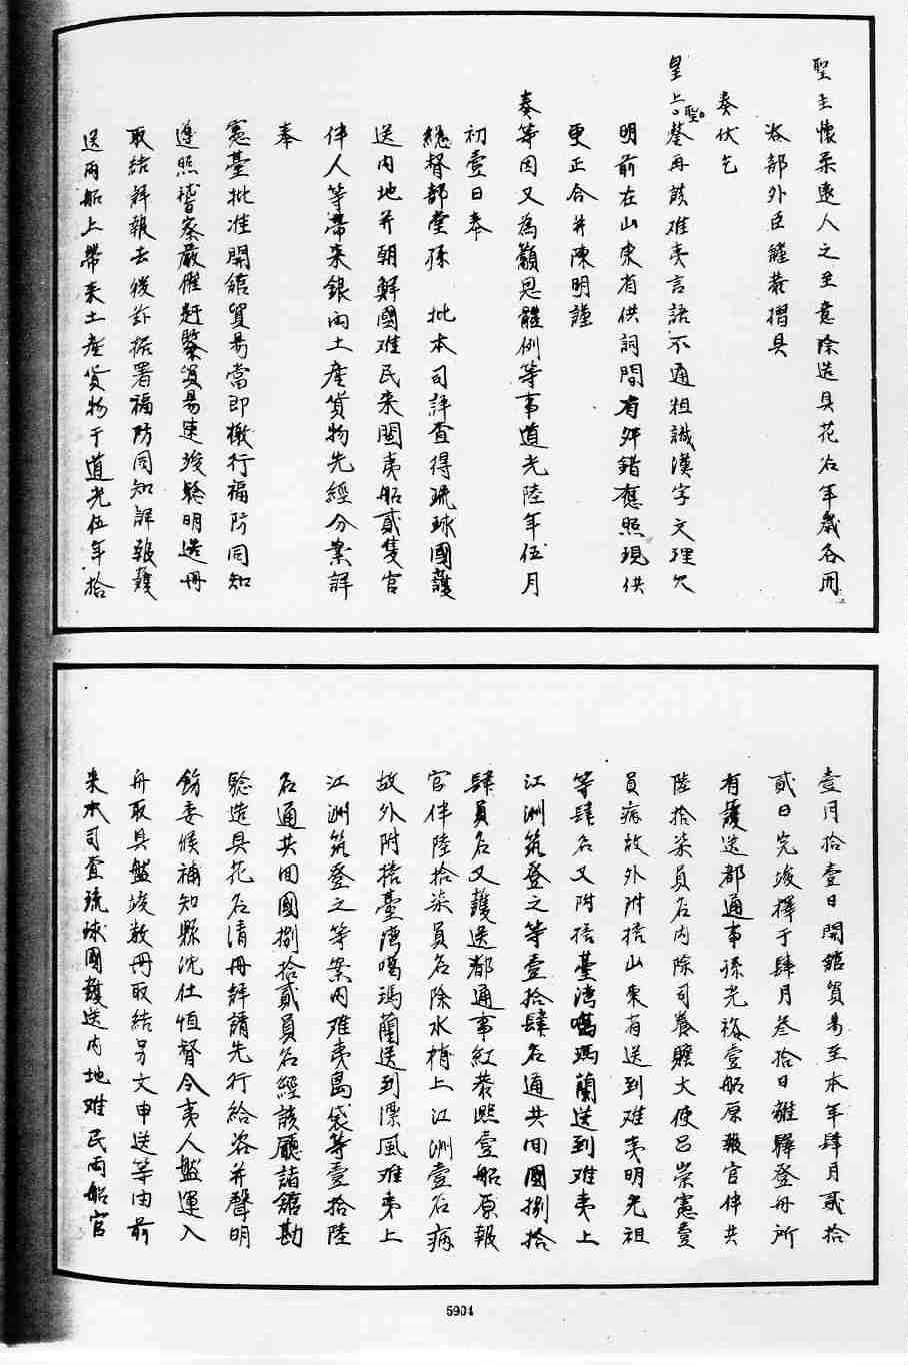 聖主懷柔遠人之至意除造具花名年歲各冊
咨部外臣謹恭摺具
奏伏乞
皇上聖鑒再該难夷言語不通粗識漢字文理欠
明前在山東省供詞間有舛錯應照現供
更正合并陳明謹
奏等因又為籲恩體例等事道光陸年伍月
初壹日奉
總督部堂孫 批本司詳查得琉球國護
送內地并朝鮮國难民来閩夷船貳隻官
伴人等帶来銀両土產貨物先經分案詳
奉
憲臺批准開舘貿易當即檄行福防同知
遵照稽察嚴催赶緊貿易速竣驗明送冊
取結詳報去後茲据署福防同知詳報護
送両船上帶来土產貨物于道光伍年拾
壹月拾壹日開舘貿易至本年肆月貳拾
貳日完竣擇于肆月叁拾日離驛登舟所
有護送都通事孫光裕壹船原報官伴共
陸拾柒員名內除司養贍大使呂崇憲壹
員病故外附搭山東省送到难夷明光祖
等肆名又附搭臺湾噶瑪蘭送到难夷上
江洲筑登之等壹拾肆名通共回國捌拾
肆員名又護送都通事紅泰熙壹船原報
官伴陸拾柒員名除水梢上江洲壹名病
故外附搭臺湾噶瑪蘭送到漂風难夷上
江洲筑登之等案內难夷島袋等壹拾陸
名通共回國捌拾貳員名經該廳詣舘勘
驗造具花名清冊詳請先行給咨并聲明
飭委候補知縣沈仕恒督令夷人盤運入
舟取具盤竣数冊取結另文申送等由前
来本司查琉球國護送內地难民両船官
5904